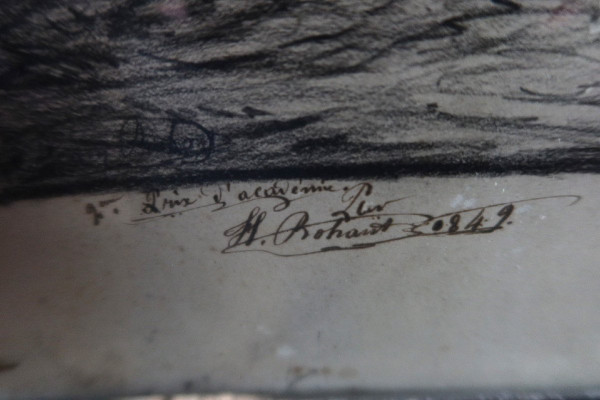 Prix d'académie.
Par
H. Rohaut 1849.